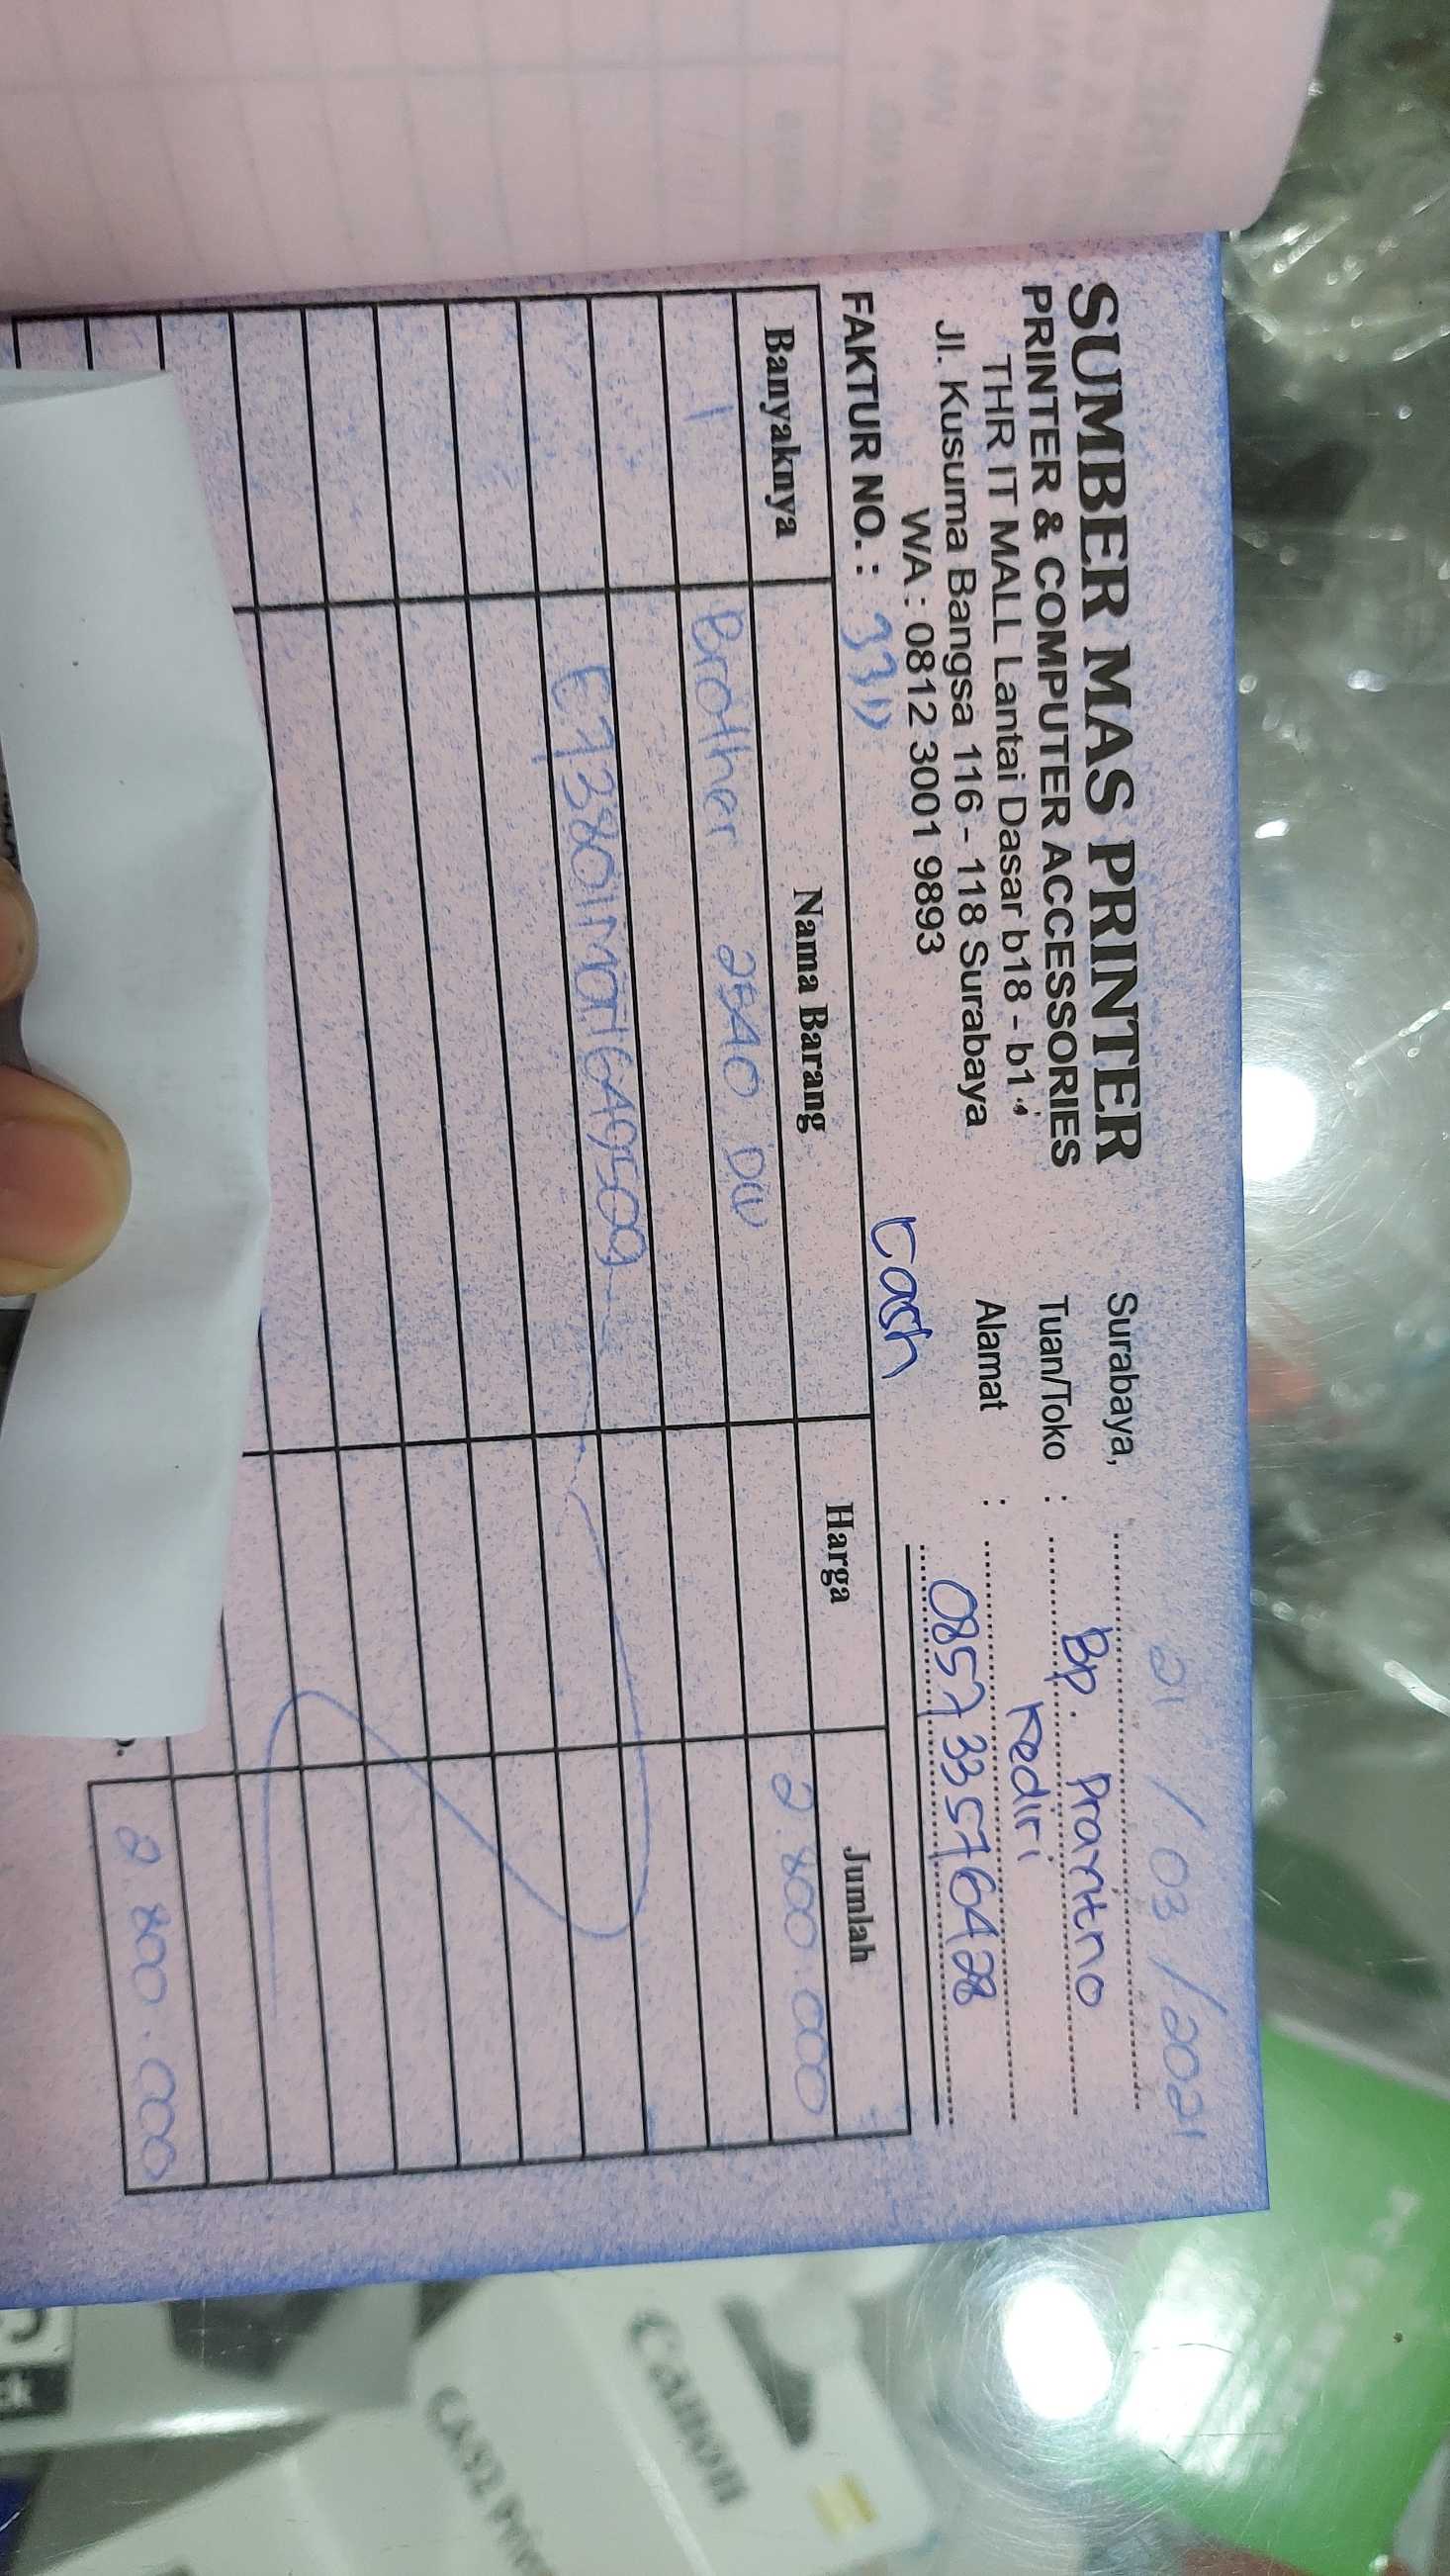 SUMBER MAS PRINTER
PRINTER & COMPUTER ACCESSORIES
THR IT MALL Lantai Dasar b18 - b1
Jl. Kusuma Bangsa 116 - 118 Surabaya
WA : 0812 3001 9893
Surabaya, 21 / 03 / 2021
Tuan/Toko : Bp. Prayitno
Alamat : Kediri
085733576428
FAKTUR NO. :
cash
Banyaknya Nama Barang Harga Jumlah
1 Brother 2540 DW 2.800.000
2.800.000
Canon